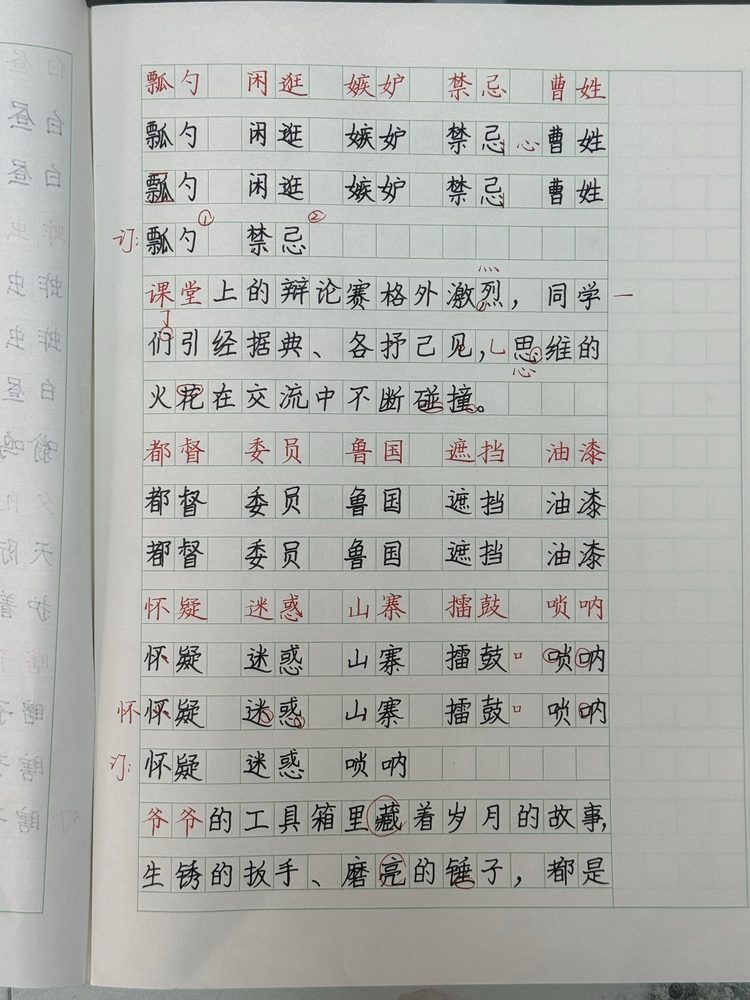 瓢勺 闲逛 嫉妒 禁忌 曹姓
瓢勺 闲逛 嫉妒 禁忌 心 曹姓
瓢勺 闲逛 嫉妒 禁忌 曹姓
订: 瓢勺① 禁忌②
课堂上的辩论赛格外激烈，同学一
们引经据典、各抒己见，思维的
心
火花在交流中不断碰撞。
都督 委员 鲁国 遮挡 油漆
都督 委员 鲁国 遮挡 油漆
都督 委员 鲁国 遮挡 油漆
怀疑 迷惑 山寨 擂鼓 唢呐
怀疑 迷惑 山寨 擂鼓 唢呐
怀 怀疑 迷惑 山寨 擂鼓 唢呐
订: 怀疑 迷惑 唢呐
爷爷的工具箱里藏着岁月的故事，
生锈的扳手、磨亮的锤子，都是